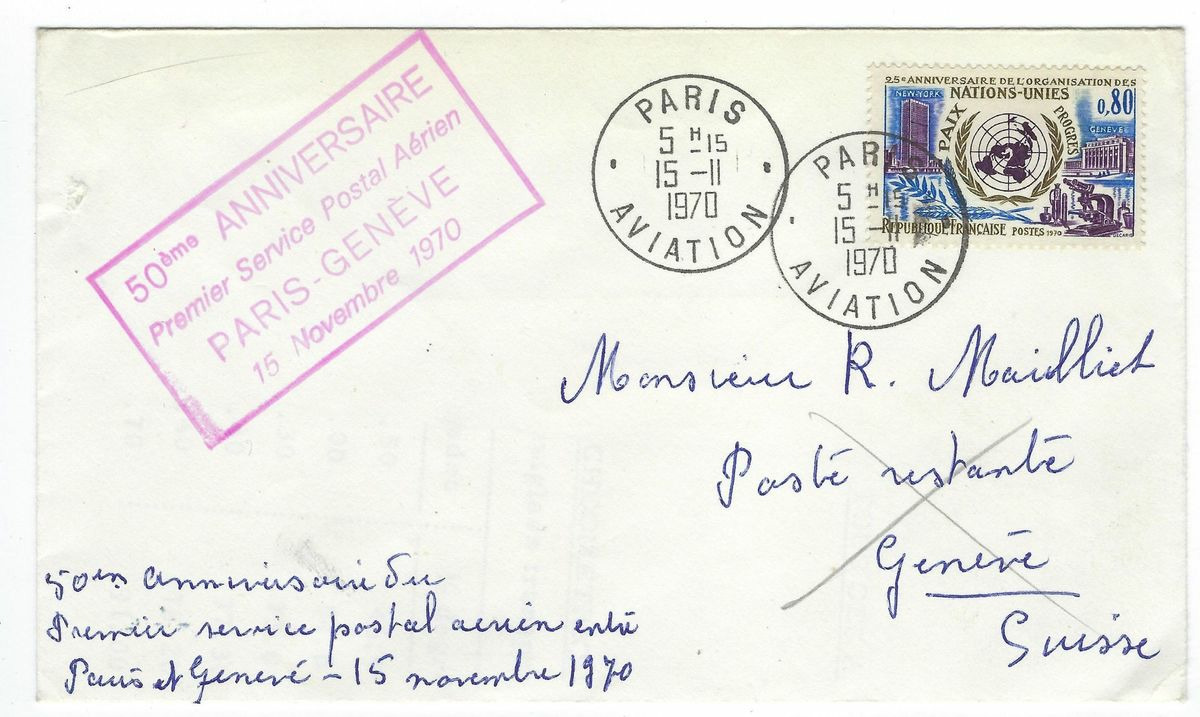 50ème ANNIVERSAIRE
Premier Service Postal Aérien
PARIS-GENÈVE
15 Novembre 1970
PARIS
5 H 15
15-11
1970
AVIATION
PARIS
5 H
15-11
1970
AVIATION
25e ANNIVERSAIRE DE L'ORGANISATION DES
NATIONS-UNIES
NEW-YORK
0,80
PAIX
PROGRES
GENEVE
REPUBLIQUE FRANCAISE POSTES 1970
DECARIS
Monsieur R. Mailliet
Poste restante
Genève
Suisse
50em anniversaire du
Premier service postal aerien entre
Paris et Genève - 15 novembre 1970